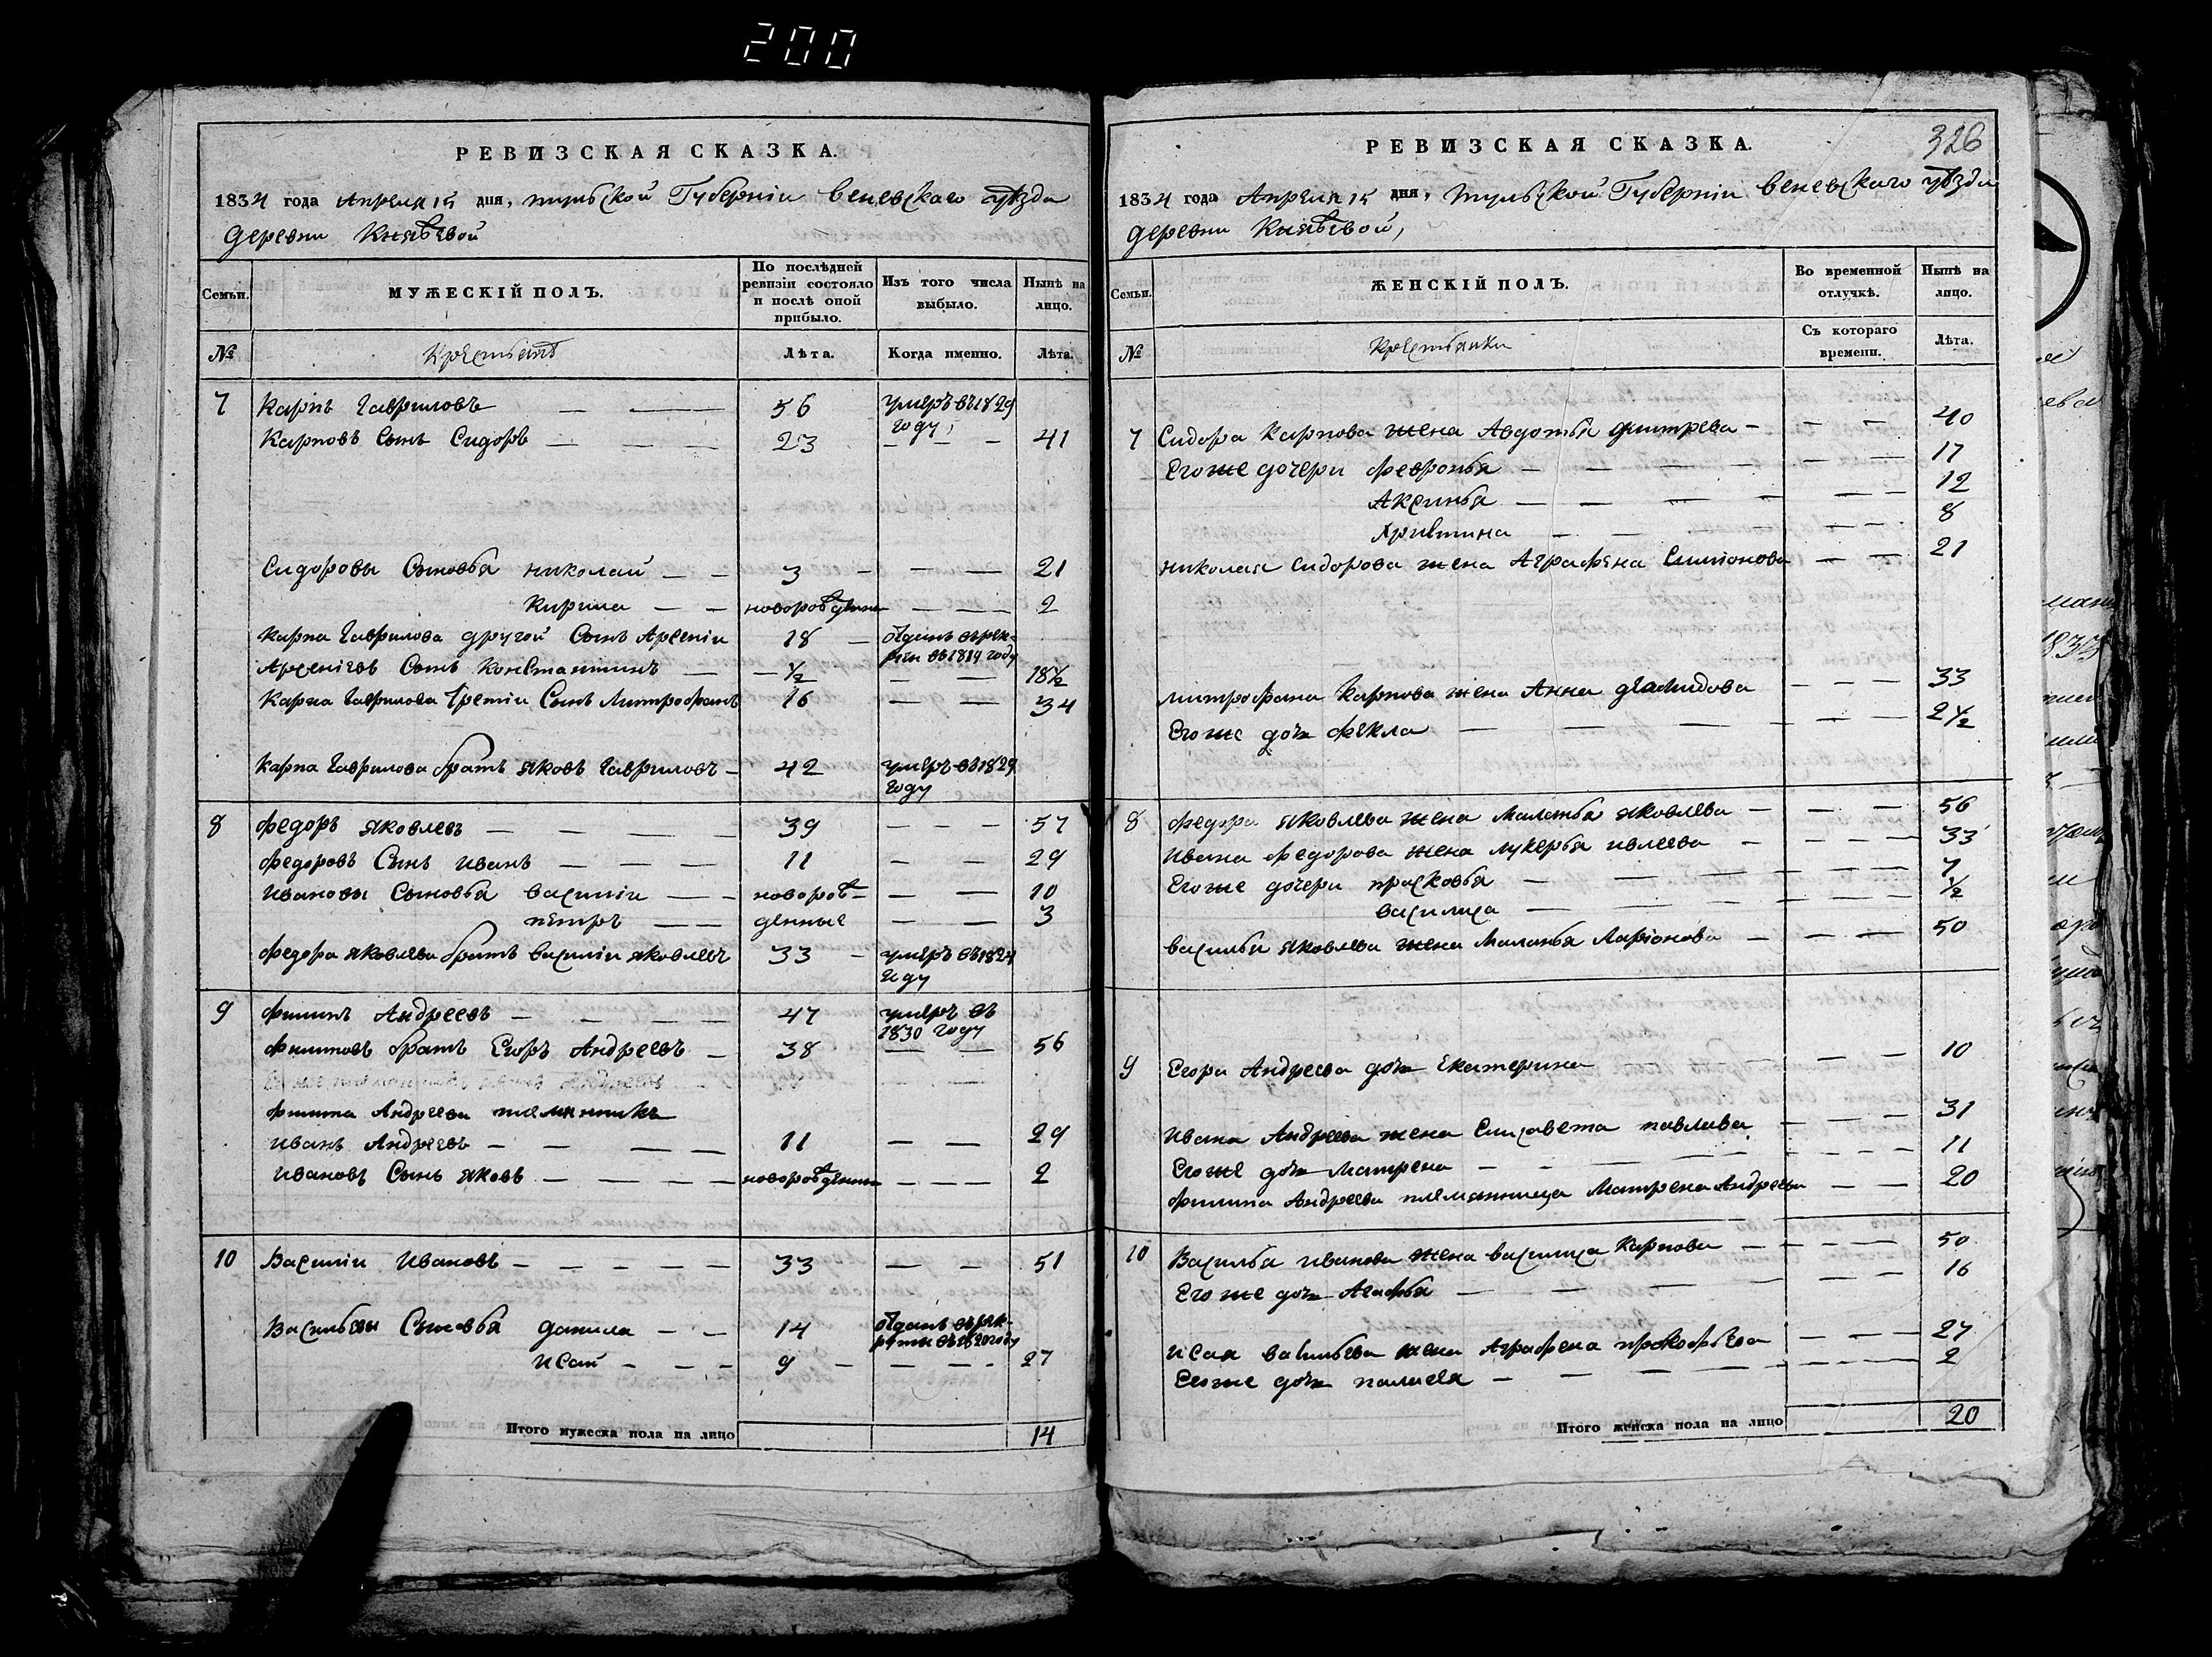 200
РЕВИЗСКАЯ СКАЗКА.
1834 года Апреля 15 дня, тульской Губерніи веневскаго уѣзда
деревни Князѣвой
Семьи.
МУЖЕСКІЙ ПОЛЪ.
По послѣдней ревизіи состояло и послѣ оной прибыло.
Изъ того числа выбыло.
Нынѣ на лицо.
№
Крестьянѣ
Лѣта.
Когда именно.
Лѣта.
7 Карпъ Гавриловъ — — 56 умеръ въ 1829 году
Карповъ Сынъ Сидоръ — — — 23 — — — 41
Сидоровы Сыновья николай — — 3 — — — 21
Кирила — — новорожденн — — — 2
Карпа Гаврилова другой Сынъ Арсеніи 18 — отданъ въ рекруты въ 1814 году
Арсеніевъ Сынъ Константинъ — — ½ — — 18½
Карпа Гаврилова третіи Сынъ Митрофанъ 16 — — 34
Карпа Гаврилова братъ яковъ Гавриловъ — 42 умеръ въ 1829 году
8 федоръ яковлевъ — — — — 39 — — — 57
федоровъ Сынъ иванъ — — — 11 — — 29
ивановы Сыновья василіи — — новорож- — — 10
петръ — — денные — — 3
федора яковлева братъ василіи яковлевъ 33 — умеръ въ 1824 году
9 филипъ Андреевъ — — — — 47 умеръ въ 1830 году
филиповъ братъ Егоръ Андреевъ — 38 — — 56
филипа Андреева племянникъ
иванъ Андреевъ — — — — 11 — — 29
ивановъ Сынъ яковъ — — — — новорожденн — — — 2
10 Василіи Ивановъ — — — — — 33 — — 51
Васильевы Сыновья данила — — 14 отданъ въ рекруты въ 1820 году
исай — — — 9 — — — — 27
Итого мужеска пола на лицо 14
326
РЕВИЗСКАЯ СКАЗКА.
1834 года Апреля 15 дня, тульской Губерніи веневскаго уѣзда
деревни Князѣвой,
Семьи.
ЖЕНСКІЙ ПОЛЪ.
Во временной отлучкѣ.
Нынѣ на лицо.
№
Крестьянки
Съ котораго времени.
Лѣта.
7 Сидора Карпова жена Авдотья дмитрева — — — — 40
Егоже дочери февронья — — — — — — — 17
Аксинья — — — — — — 12
Христина — — — — — 8
николая сидорова жена Аграфена Симионова — — 21
митрофана Карпова жена Анна 33
Егоже дочь фекла — — — — — — 2½
8 федора яковлева жена Маланья яковлева — — — — 56
ивана федорова жена лукерья ивлеева — — — — 33
Егоже дочери прасковья — — — — — — 7
василиса — — — — — — ½
василья яковлева жена Маланья Ларіонова — — — — 50
9 Егора Андреева дочь Екатерина — — — 10
Ивана Андреева жена Елисавета павлова — — — 31
Егоже дочь Матрена — — — — — — 11
филипа Андреева племянница Матрена Андреева — — 20
10 Василья иванова жена василиса Карпова — — — — 50
Егоже дочь Агафья — — — — — — 16
исая васильева жена Аграфена прокофьева — — — 27
Егоже дочь пелагея — — — — — — — 2
Итого женска пола на лицо 20